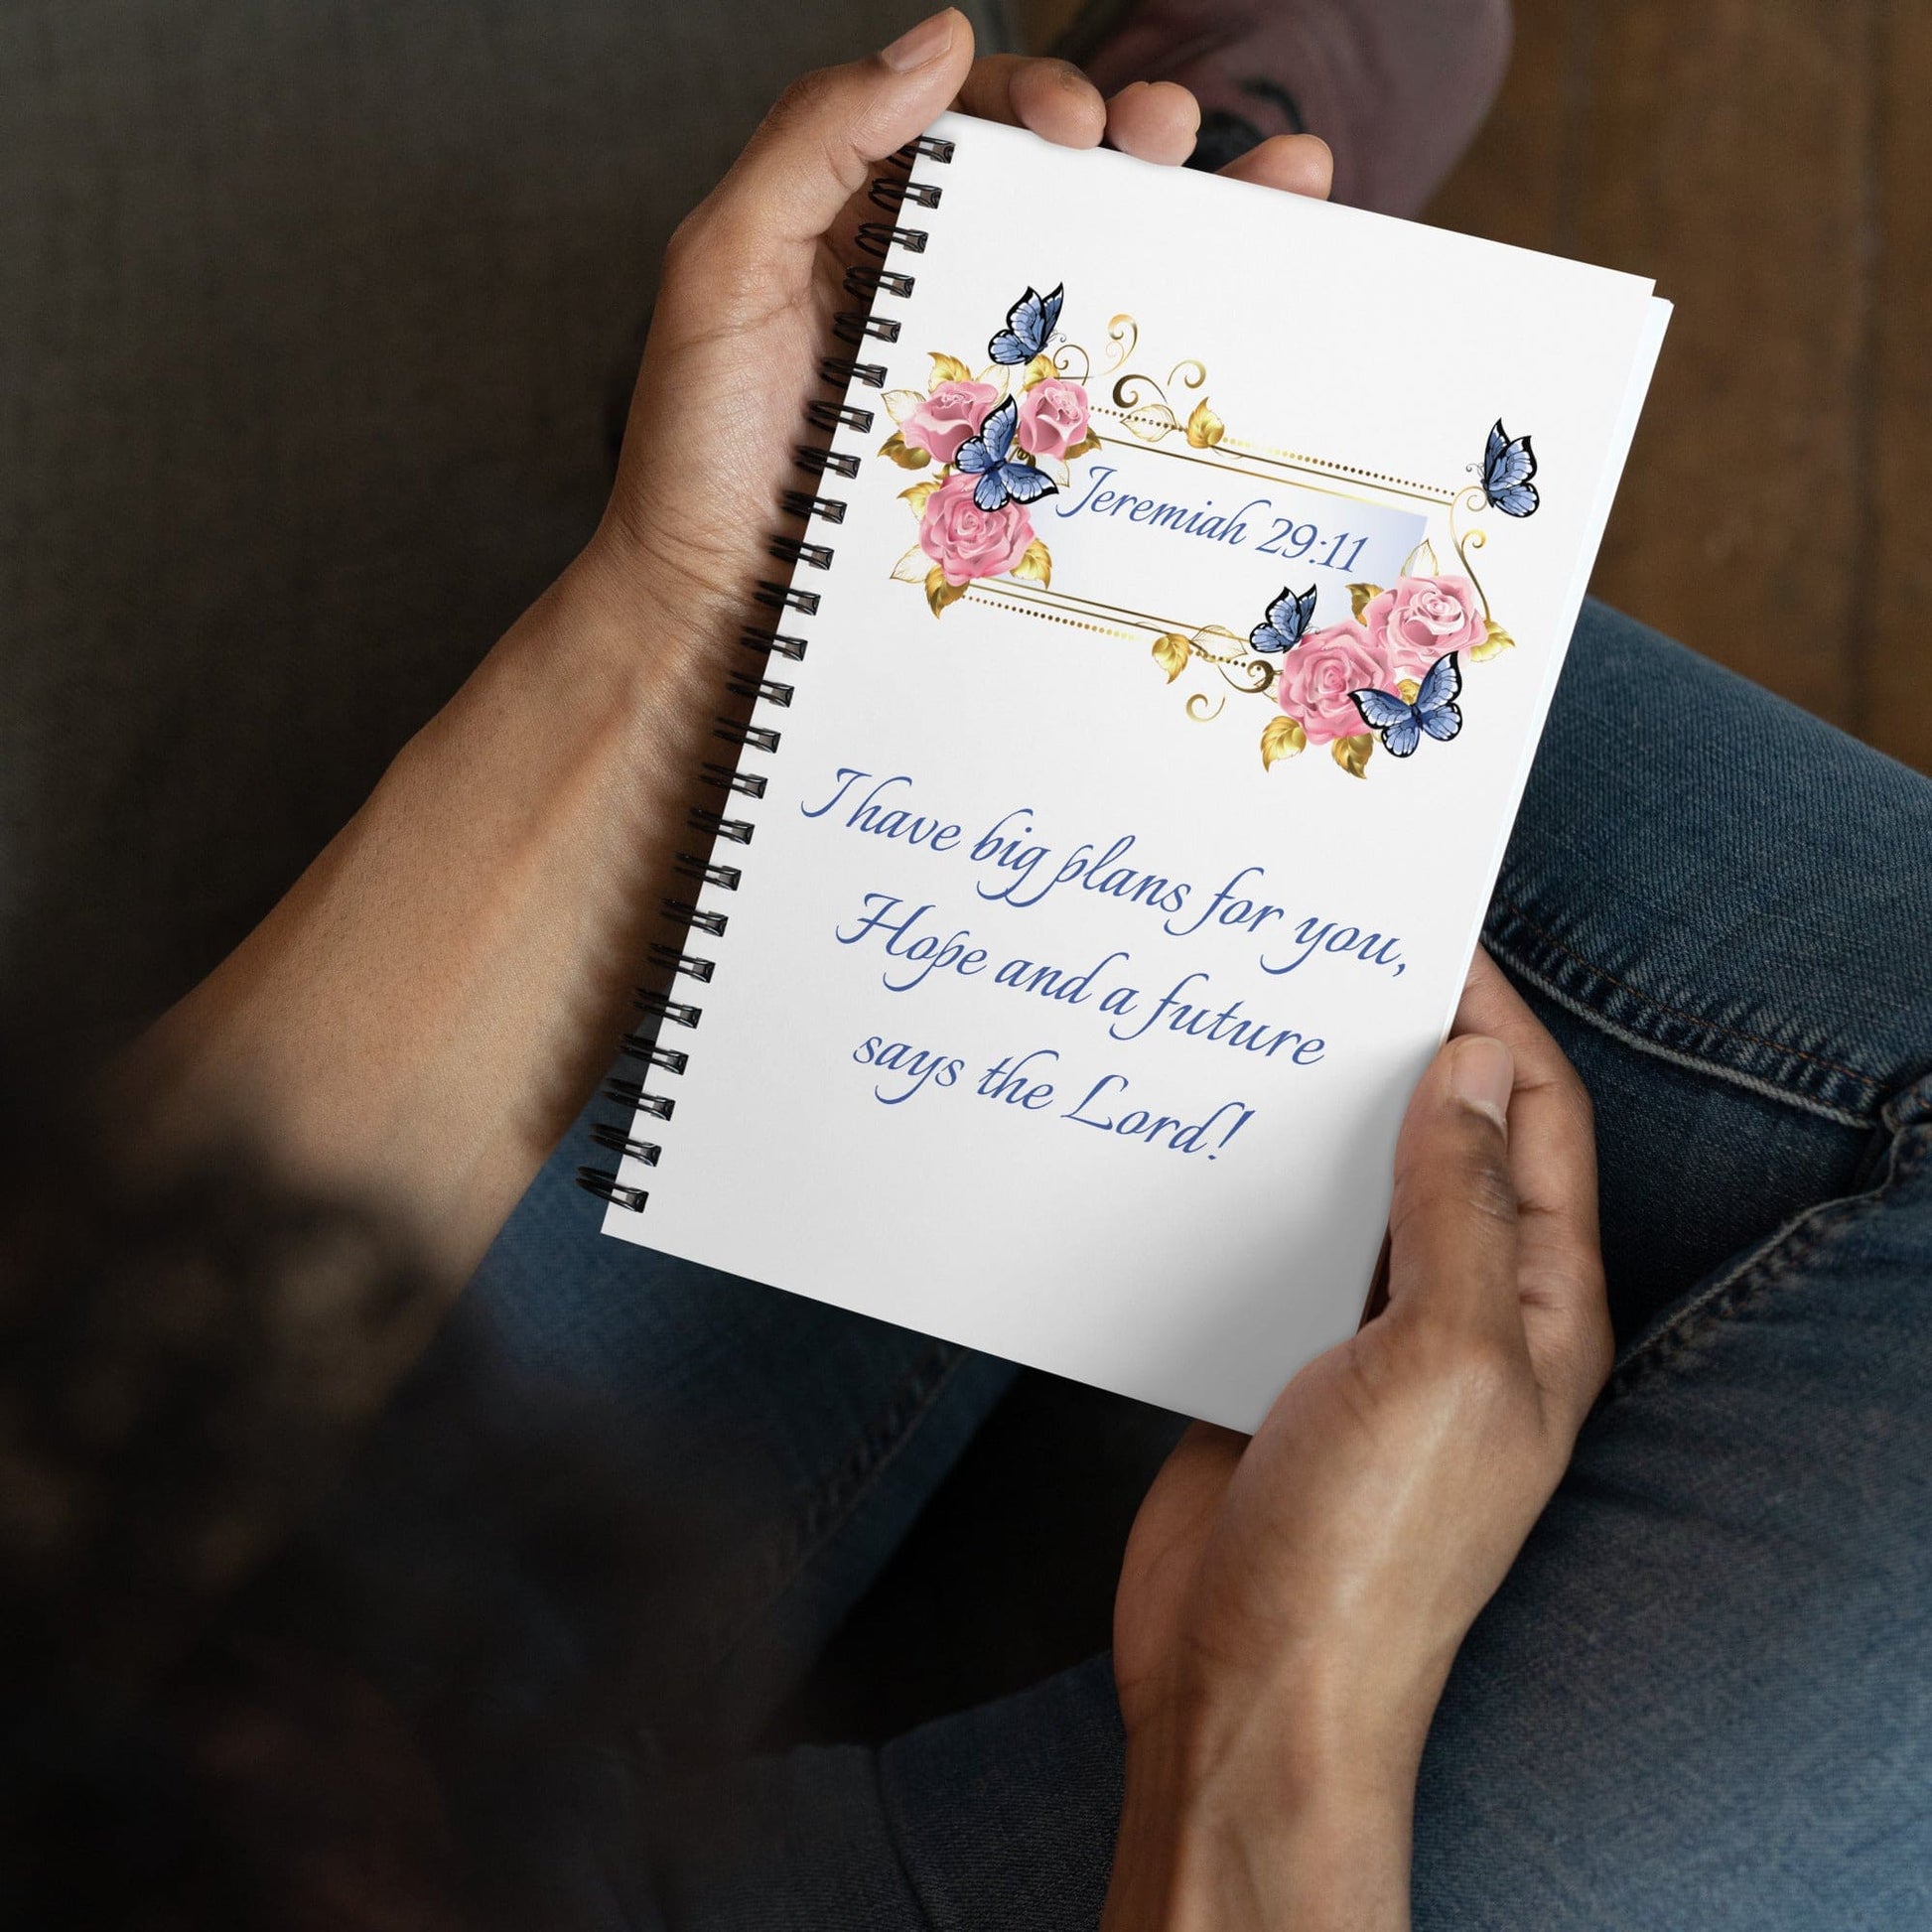 Jeremiah 29:11
I have big plans for you,
Hope and a future
says the Lord!